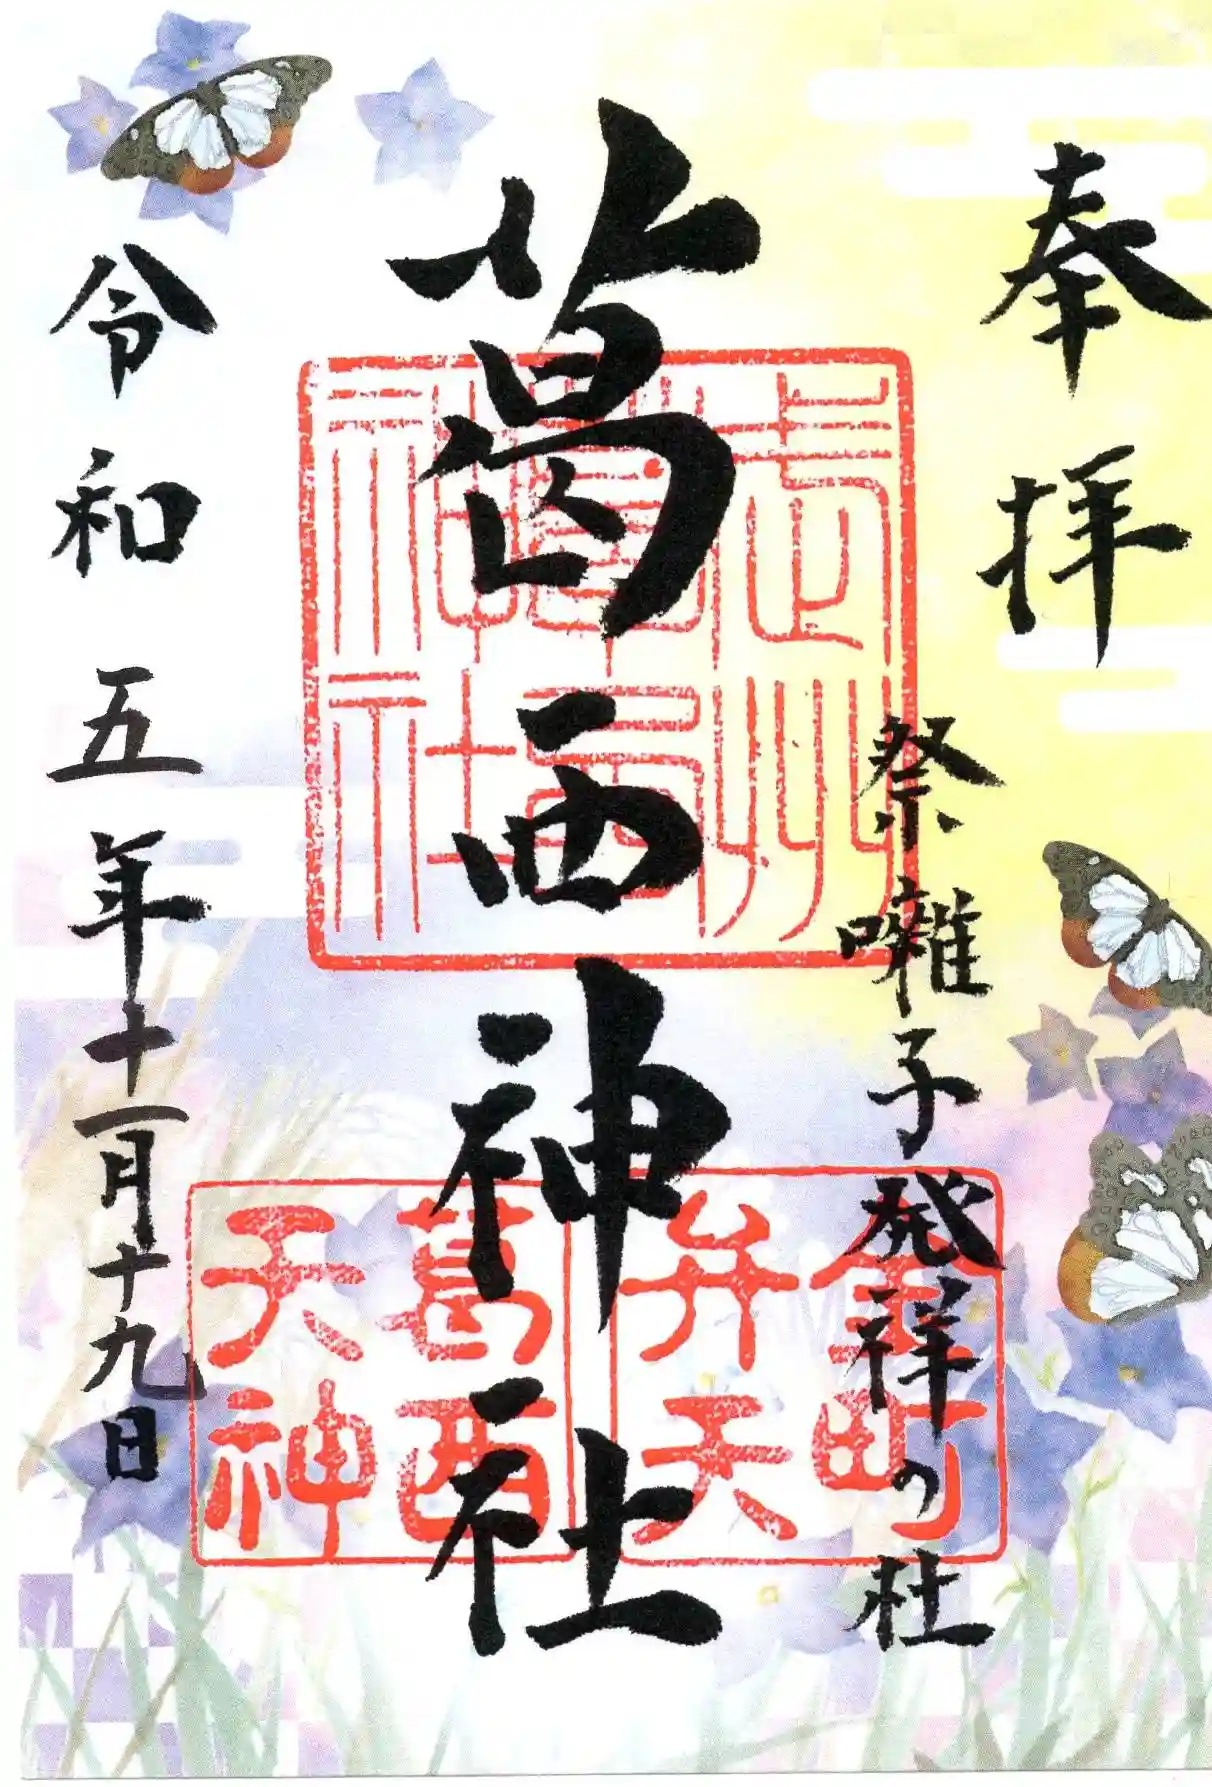 奉拝
祭囃子発祥の杜
葛西神社
令和五年十一月十九日
武州
葛西
神社
金町
弁天
葛西
天神